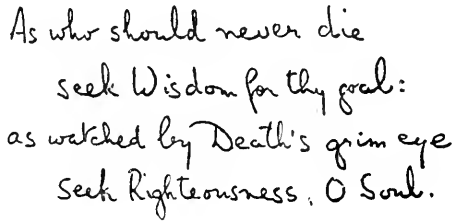 As who should never die
seek Wisdom for thy goal:
as watched by Death's grim eye
seek Righteousness, O Soul.